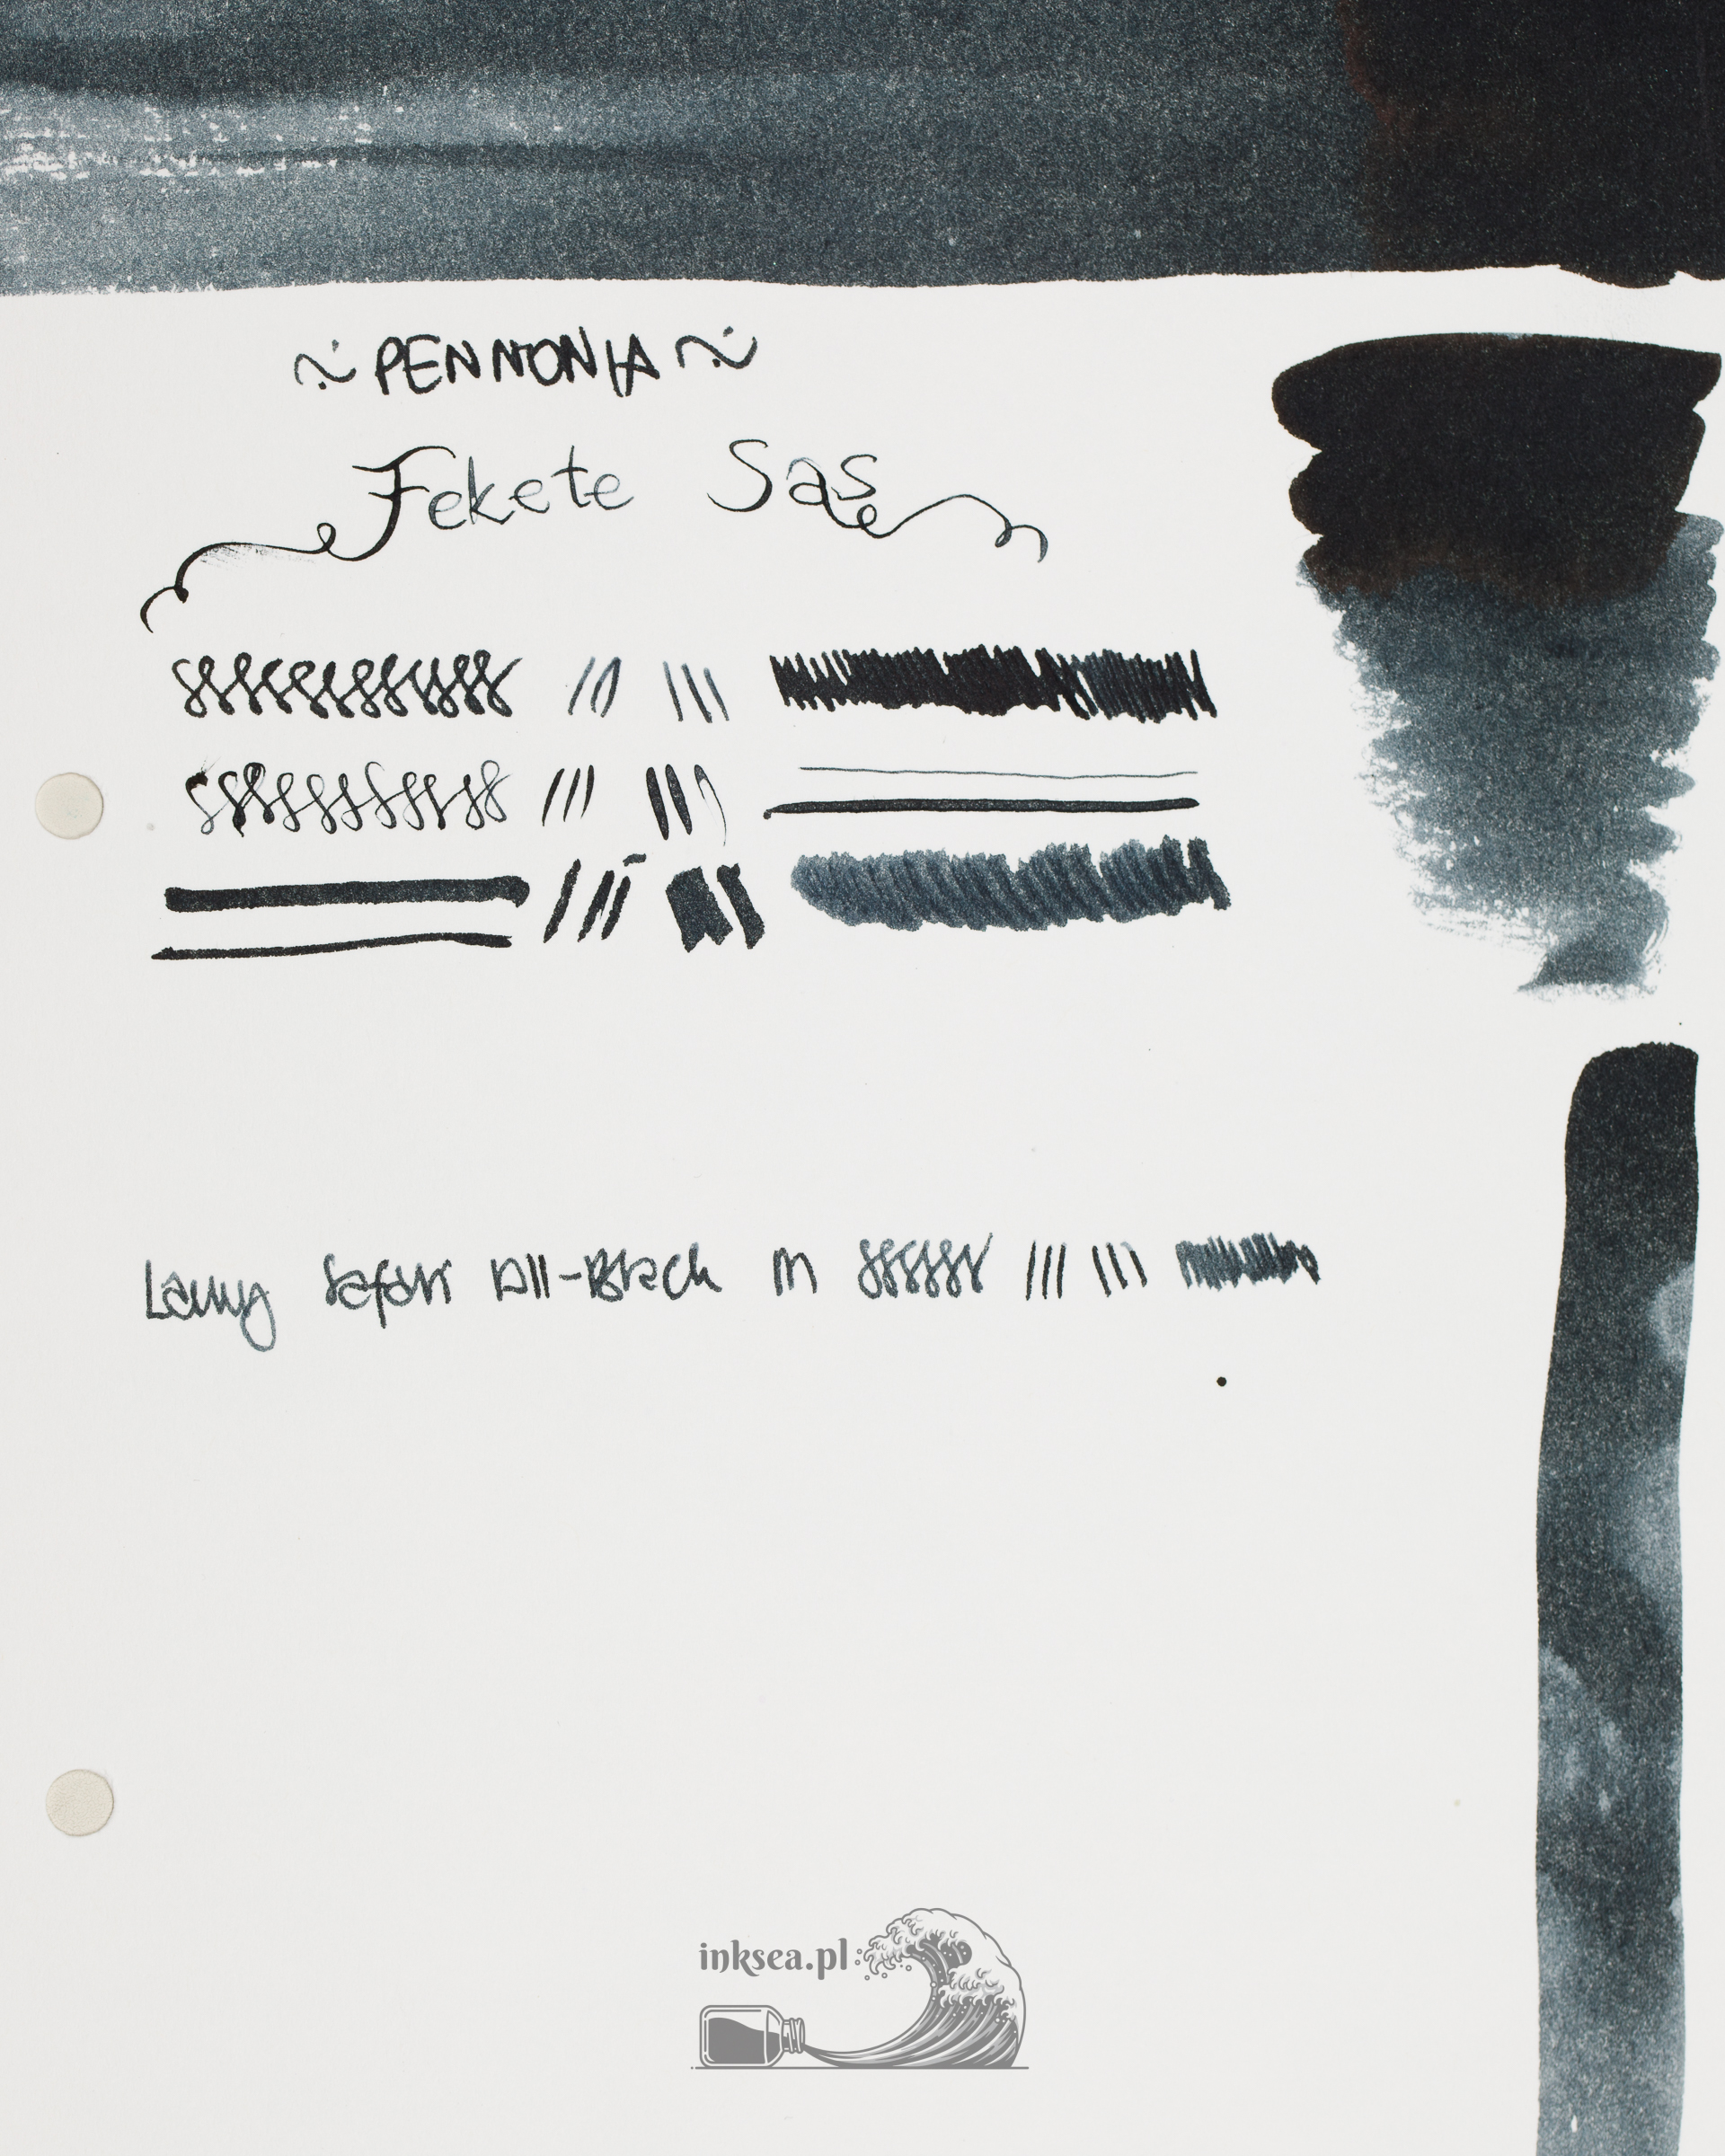 ~ PENNONIA ~
Fekete Sas
Lamy Safari All-Black M
inksea.pl